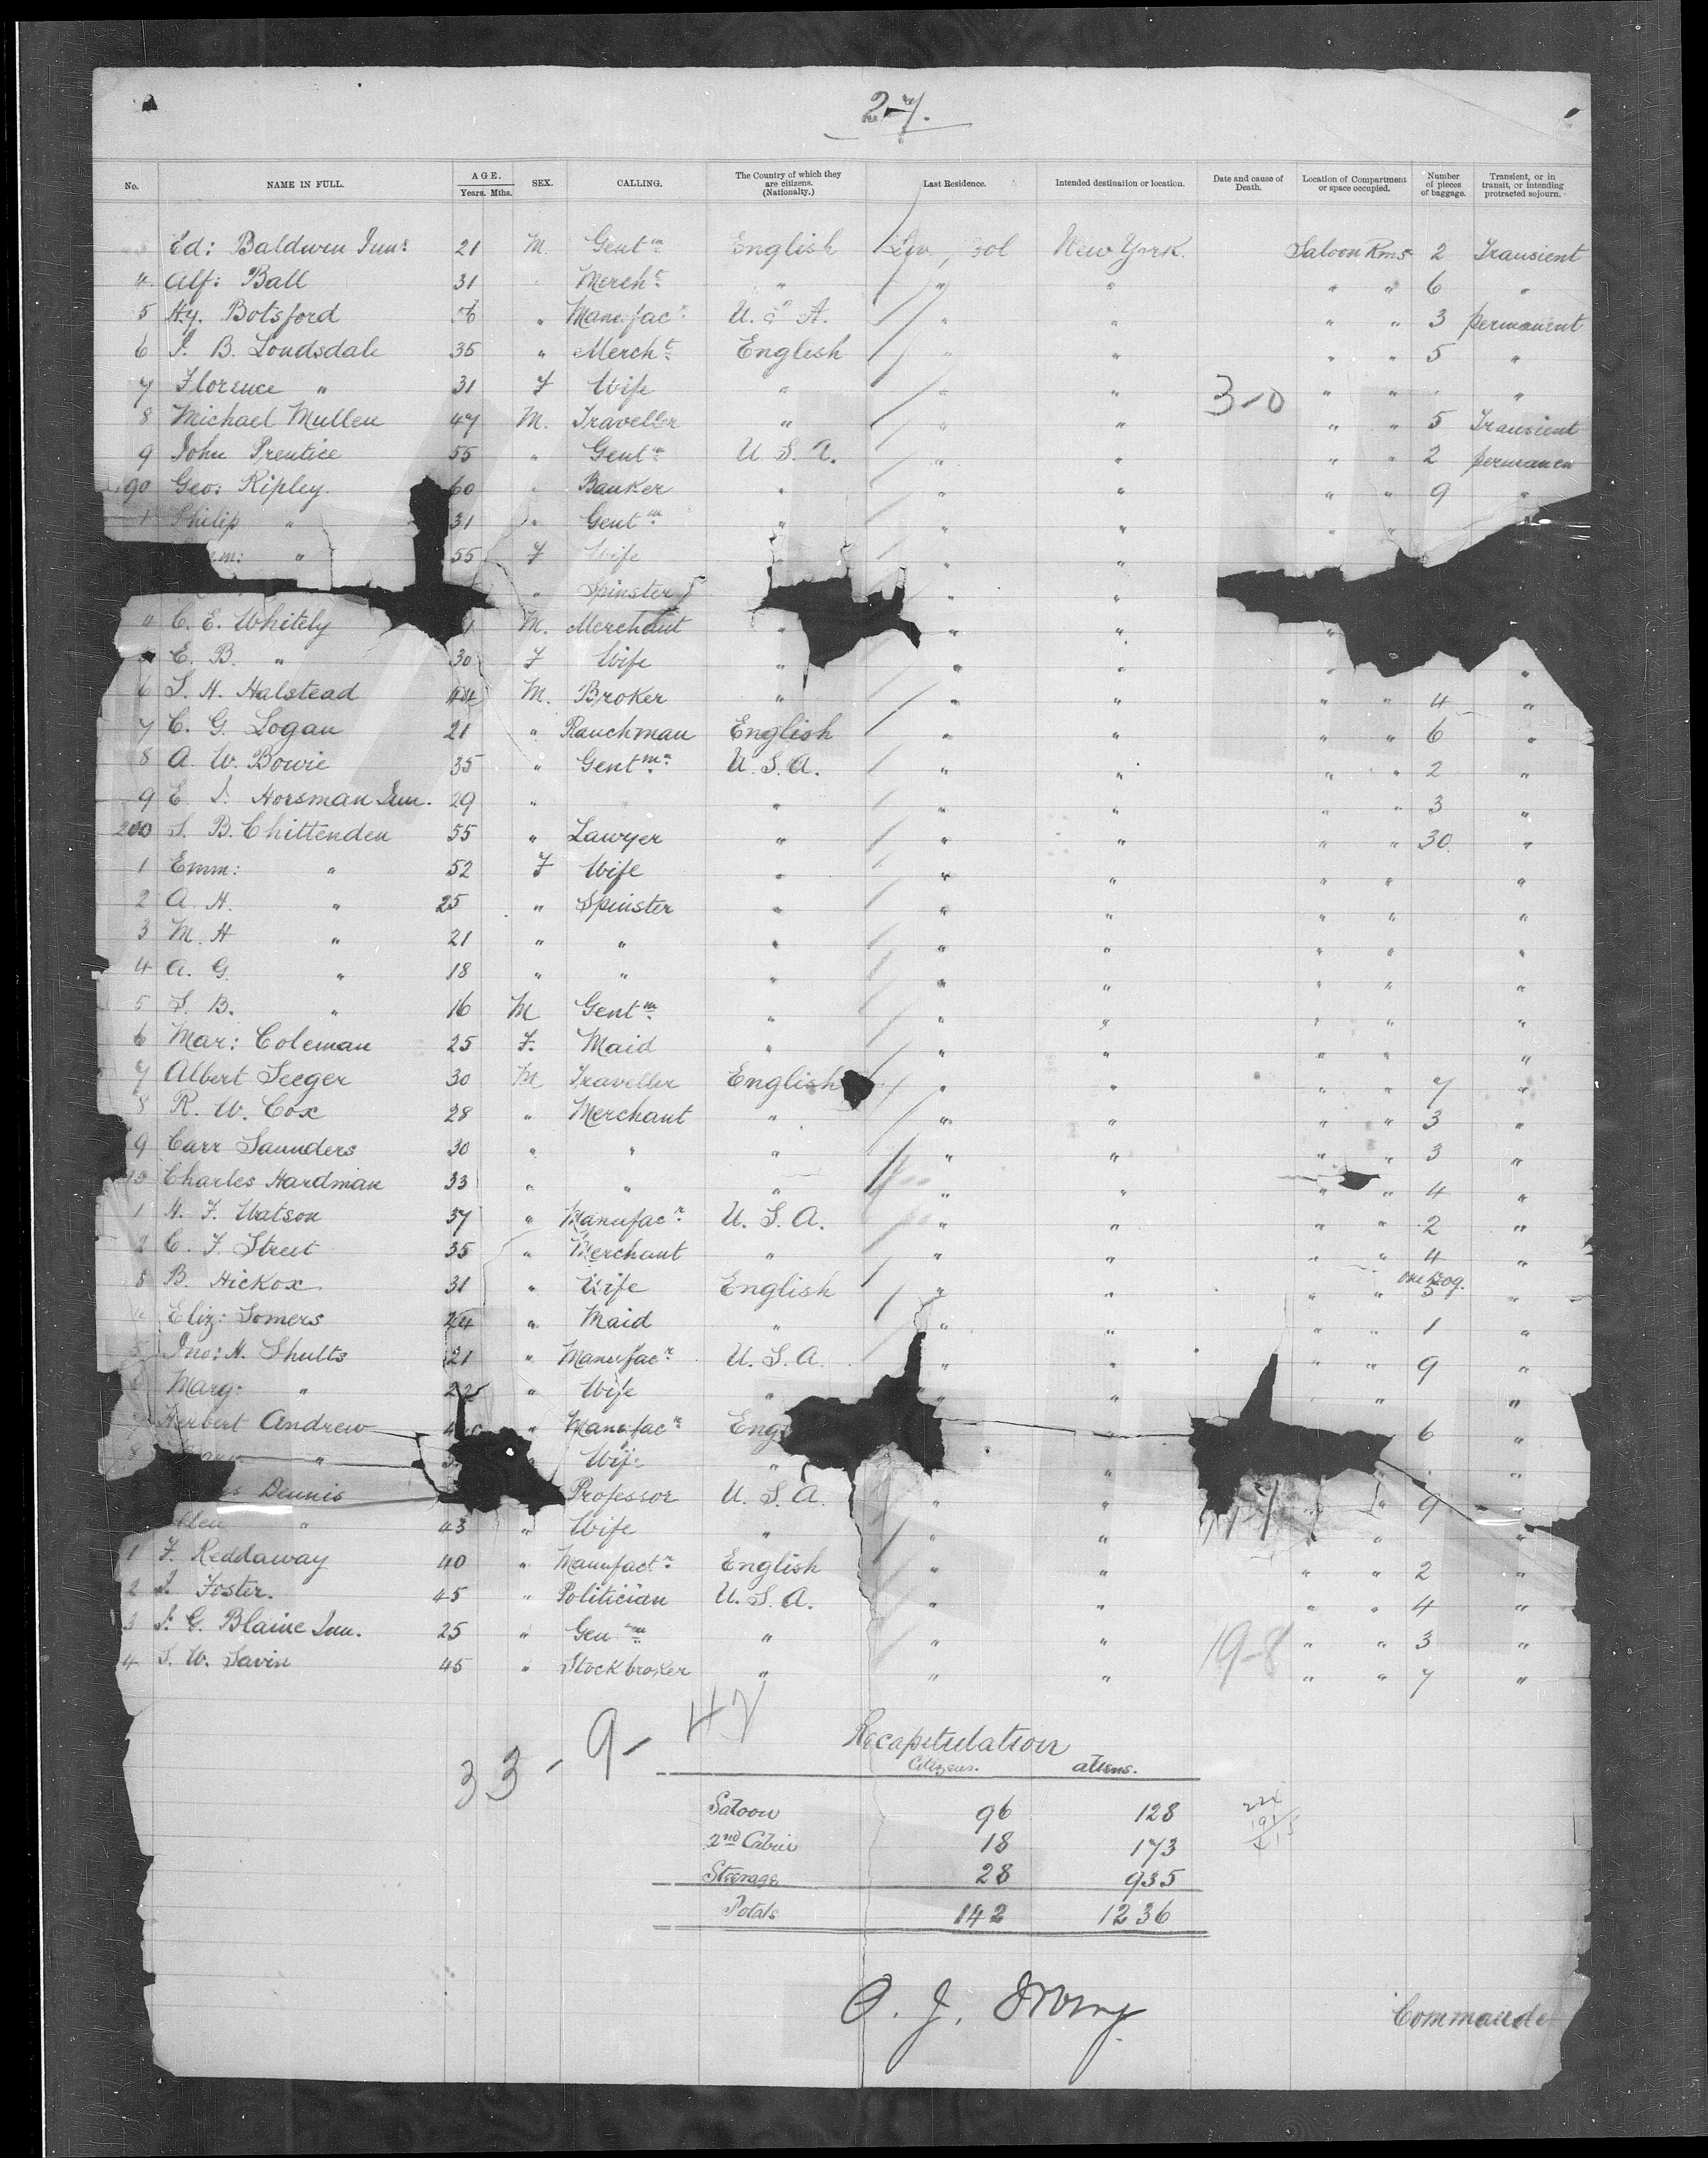 2
No. NAME IN FULL. AGE. Years. Mths. SEX. CALLING. The Country of which they are citizens. (Nationalty.) Last Residence. Intended destination or location. Date and cause of Death. Location of Compartment or space occupied. Number of pieces of baggage. Transient, or in transit, or intending protracted sojourn.
Ed: Baldwin Junr 21 M. Gentm English New York. Saloon Rms 2 Transient
4 Alf: Ball 31 Mercht " " " " 6 "
5 Hy. Botsford 56 " Manufacr U. S. A. " " " " 3 permanent
6 J. B. Londsdale 35 " Mercht English " " " " 5 "
7 Florence " 31 F Wife " " " " " "
3-0
8 Michael Mullen 47 M. Traveller " " " " " 5 Transient
9 John Prentice 55 " Gentn U. S. A. " " " " 2 permanen
90 Geo: Ripley. 60 " Banker " " " " " 9 "
1 Philip " 31 " Gentm " " " "
m: " 55 F Wife " "
" Spinster " "
4 C. E. Whitely M. Merchant " " " "
E. B. " 30 F Wife " " " " "
6 S. H. Halstead 44 M. Broker " " " " " 4 "
7 C. G. Logan 21 " Ranchman English " " " " 6 "
8 A. W. Bowie 35 " Gentmn U. S. A. " " " " 2 "
9 E. I. Horsman Jun. 29 " " " " " 3 "
200 S. B. Chittenden 55 " Lawyer " " " " " 30 "
1 Emm: " 52 F Wife " " " " " "
2 A. H. " 25 " Spinster " " " " " "
3 M. H " 21 " " " " " " " "
4 A. G. " 18 " " " " " " " "
5 S. B. " 16 M Gentm " " " " " "
6 Mar: Coleman 25 F. Maid " " " " " "
7 Albert Seeger 30 M Traveller English " " " " 7 "
8 R. W. Cox 28 " Merchant " " " " " 3 "
9 Carr Saunders 30 " " " " " " " 3 "
10 Charles Hardman 33 " " " " " " " 4 "
1 H. F. Watson 37 " Manufacr U. S. A. " " " " 2 "
2 C. F. Street 35 " Merchant " " " " " 4 "
3 B. Hickox 31 " Wife English " " " " one Dog. "
4 Eliz: Somers 24 " Maid " " " " " 1 "
5 Jno: H. Shults 21 " Manufacr U. S. A. " " " " 9 "
Marg: " " Wife " " " " " "
7 Herbert Andrew " Manufacr Eng " 6 "
8 " Wife " " " "
Dennis Professor U. S. A. " " " " 9
" 43 " Wife " " " " " "
1 F. Reddaway 40 " Manufactr English " " " " 2 "
2 J. Foster. 45 " Politician U. S. A. " " " " 4 "
3 J. G. Blaine Jun. 25 " Gen m " " " " " 3 "
19-8
4 S. W. Savin 45 " Stockbroker " " " " " 7 "
33 - 9 - 47
Recapitulation
Citizens. aliens.
Saloon 96 128
2nd Cabin 18 173
Steerage 28 935
Totals 142 1236
Commande